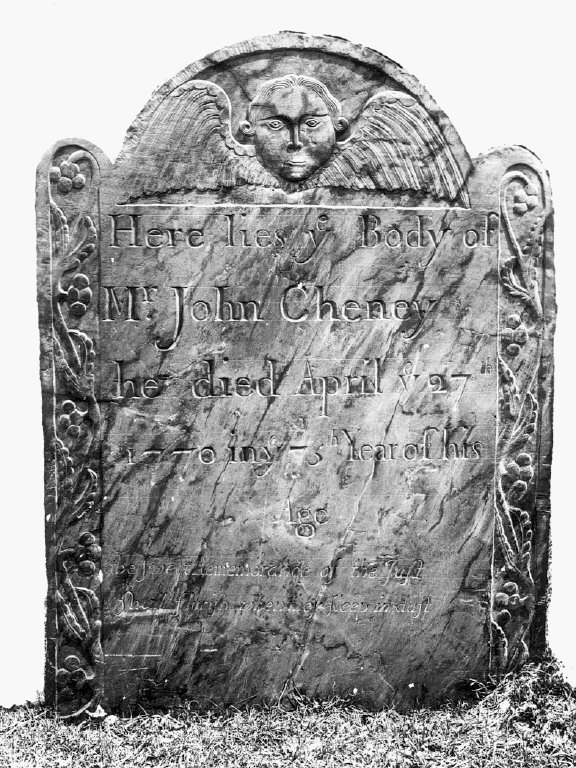 Here lies yᵉ Body of
Mʳ. John Cheney
he died April yᵉ 27ᵗʰ
1770 in yᵉ 75ᵗʰ Year of his
Age
The Sweet Remembrance of the Juſt
Shall flurish when they ſleep in duſt